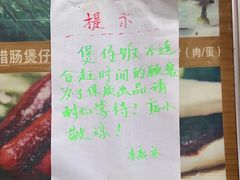 提示
煲仔饭不适
合赶时间的顾客
为了保质出品请
耐心等待！店小
敬凉！
腊肠煲仔
(肉/蛋)